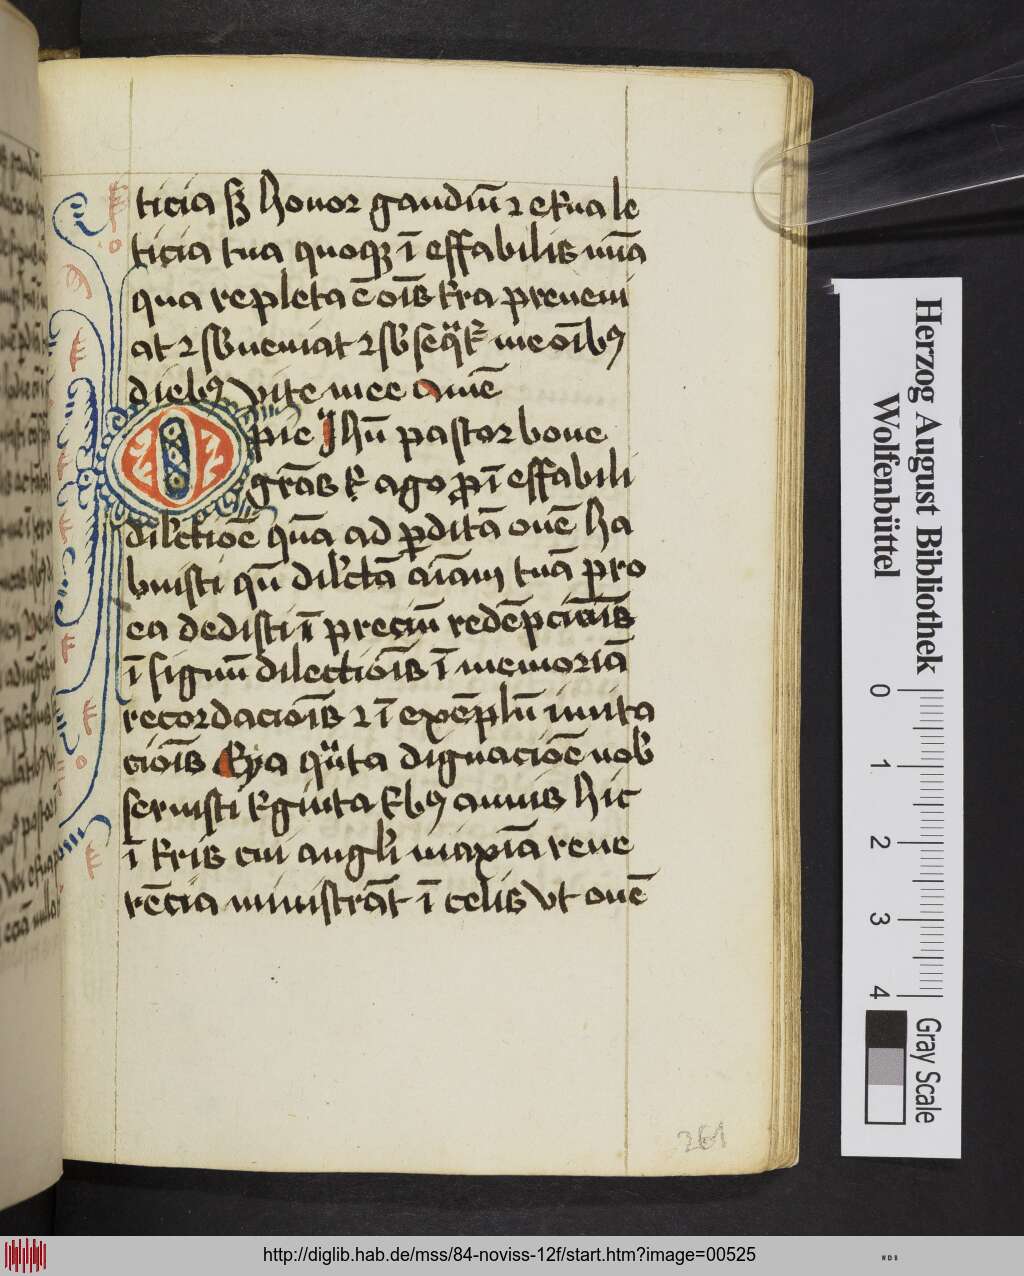 ticia sꝫ honor gaudiū ⁊ et̾na le
ticia tua quoqꝫ ī effabilis mīa
qua repleta ē oīs t̾ra preueni
at ⁊ sb̾ueniat ⁊ sb̾seqͣt̾ me oībꝰ
diebꝰ vite mee amē
O pie Ihū pastor bone
grās t̾ ago ꝓ ī effabili
dilectiōe quā ad ꝑditā ouē ha
buisti qn̄ dilc̾tā aīam tuā pro
ea dedisti ī preciū redēpciōis
ī signū dilectiōis ī memoriā
recordaciōis ⁊ ī exēplū imita
ciōis Eya qͣnta dignaciōe nob̾
seruisti t̾ginta t̾bꝰ annis hic
ī t̾ris cui angl̾i maxīa reue
rēcia ministrāt ī celis vt ouē
261
Herzog August Bibliothek
Wolfenbüttel
0 1 2 3 4
Gray Scale
http://diglib.hab.de/mss/84-noviss-12f/start.htm?image=00525